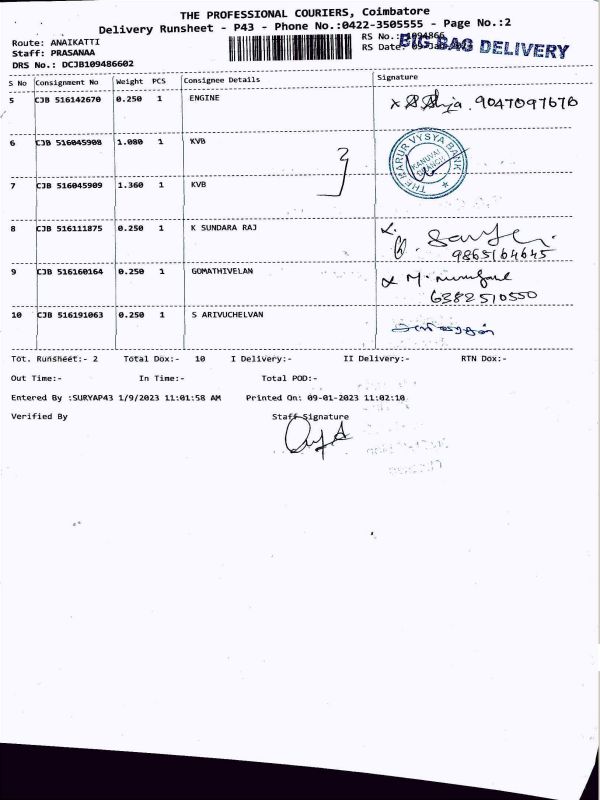 THE PROFESSIONAL COURIERS, Coimbatore
Delivery Runsheet - P43 - Phone No.:0422-3505555 - Page No.:2
Route: ANAIKATTI RS No.: 1094866
Staff: PRASANAA RS Date: BIG BAG DELIVERY
DRS No.: DCJB109486602
S No Consignment No Weight PCS Consignee Details Signature
5 CJB 516142670 0.250 1 ENGINE 9047097670
6 CJB 516045908 1.080 1 KVB THE KARUR VYSYA BANK KANUVAI BRANCH
7 CJB 516045909 1.360 1 KVB
8 CJB 516111875 0.250 1 K SUNDARA RAJ
9865164645
9 CJB 516160164 0.250 1 GOMATHIVELAN
6382510550
10 CJB 516191063 0.250 1 S ARIVUCHELVAN
Tot. Runsheet:- 2 Total Dox:- 10 I Delivery:- II Delivery:- RTN Dox:-
Out Time:- In Time:- Total POD:-
Entered By :SURYAP43 1/9/2023 11:01:58 AM Printed On: 09-01-2023 11:02:10
Verified By Staff Signature